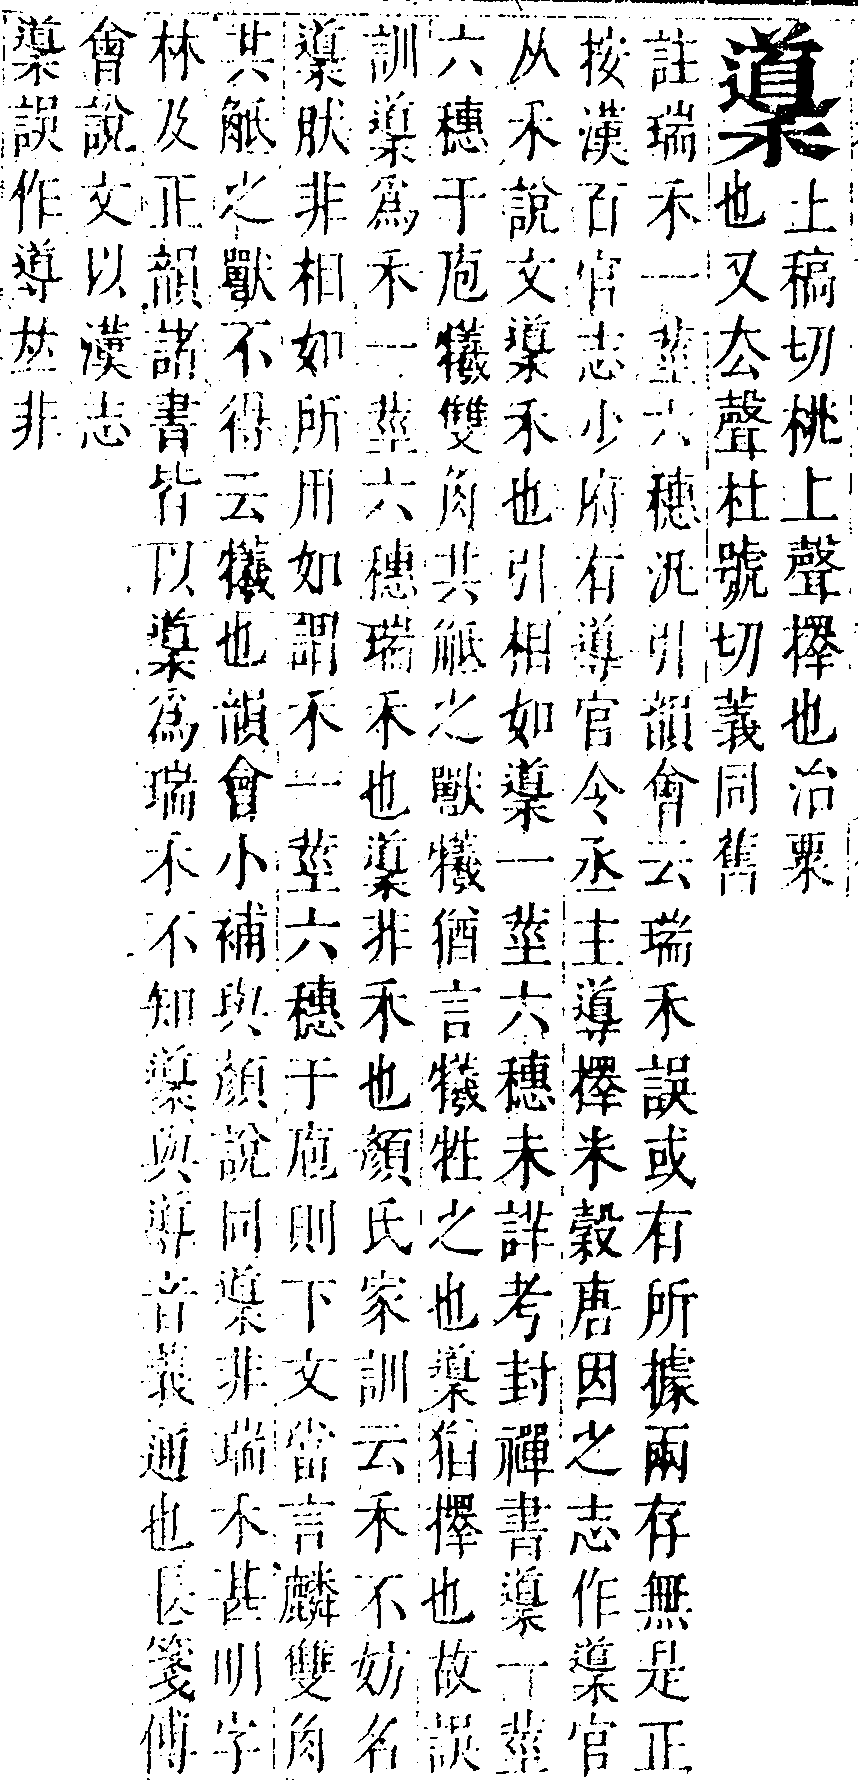 䆃上稿切桃上聲擇也治粟
也又厺聲杜號切義同舊
註瑞禾一莖六穗汎引韻會云瑞禾誤或有所據兩存無是正
按漢百官志少府有導官令丞主導擇米穀唐因之志作䆃官
从禾說文䆃禾也引相如䆃一莖六穗未詳考封禪書䆃一莖
六穗于庖犧雙角共觝之獸犧猶言犧牲之也䆃猶擇也故誤
訓䆃爲禾一莖六穗瑞禾也䆃非禾也顏氏家訓云禾不妨名
䆃肰非相如所用如謂禾一莖六穗于庖則下文當言麟雙角
共觝之獸不得云犧也韻會小補與顏說同䆃非瑞禾甚明字
林及正韻諸書皆以䆃爲瑞禾不知䆃與導音義通也長箋傅
會說文以漢志
䆃誤作導𠀤非